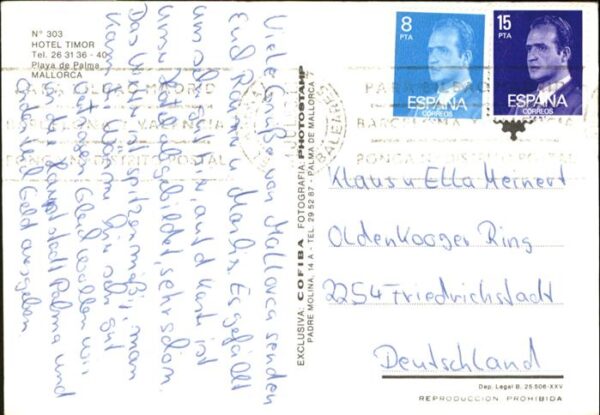 N° 303
HOTEL TIMOR
Tel. 26 31 36 - 40
Playa de Palma
MALLORCA
Viele Grüße von Mallorca senden
Euch Rainer u. Marlis. Es gefällt
uns sehr gut hier, auf d. Karte ist
unser Hotel abgebildet, sehr schön.
Das Wetter ist spitzenmäßig, man
kann
Heute wollen wir
in die Hauptstadt Palma und
ordentlich Geld ausgeben
EXCLUSIVA: COFIBA FOTOGRAFIA: PHOTOSTAMP
PADRE MOLINA, 14 A - TEL. 29 52 87 - PALMA DE MALLORCA
8
PTA
ESPAÑA
CORREOS
15
PTA
ESPAÑA
CORREOS
PARA BILBAO MADRID
BARCELONA VALENCIA
PONGA Nº DISTRITO POSTAL
BALEARES
Klaus u Ella Meinert
Oldenkooger Ring
2254 Friedrichstadt
Deutschland
Dep. Legal B. 25.506-XXV
REPRODUCCION PROHIBIDA